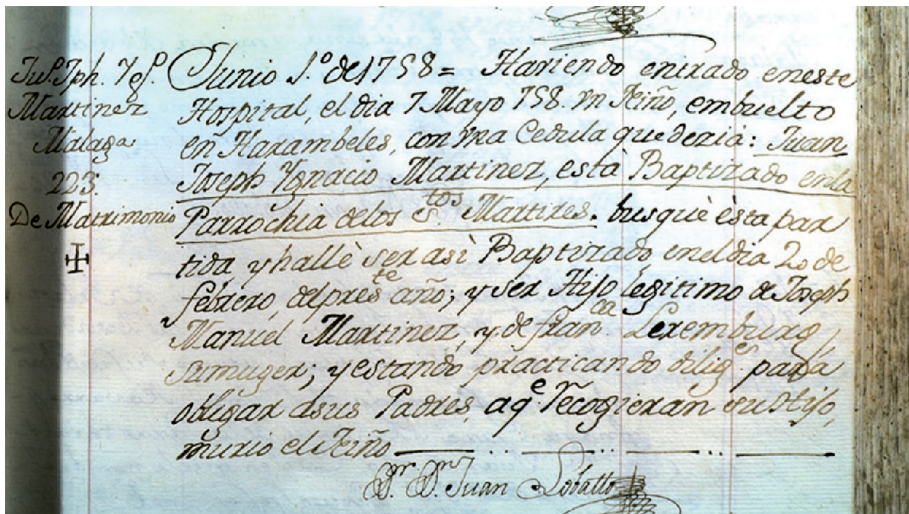 Jul. Jph. Ygº.
Martinez
Malaga
223.
De Matrimonio
Junio 1.º de 1758 = Haviendo entrado eneste
Hospital, el dia 7 Mayo 758. vn Niño, embuelto
en Harambeles, con vna Cedula que dezia: Juan
Joseph Ygnacio Martinez, està Baptizado enla
Parrochia delos Stos Martires. busquè èsta par
tida y hallè ser asì Baptizado enel dia 2 de
febrero, del preste año; y ser Hijo legitimo de Joseph
Manuel Martinez, y de franca Lexemburg
sumuger; y estando practicando dilige para
obligar asus Padres, aqe recogieran su Hijo,
murio el Niño
Dr. Dn. Juan Lobatto